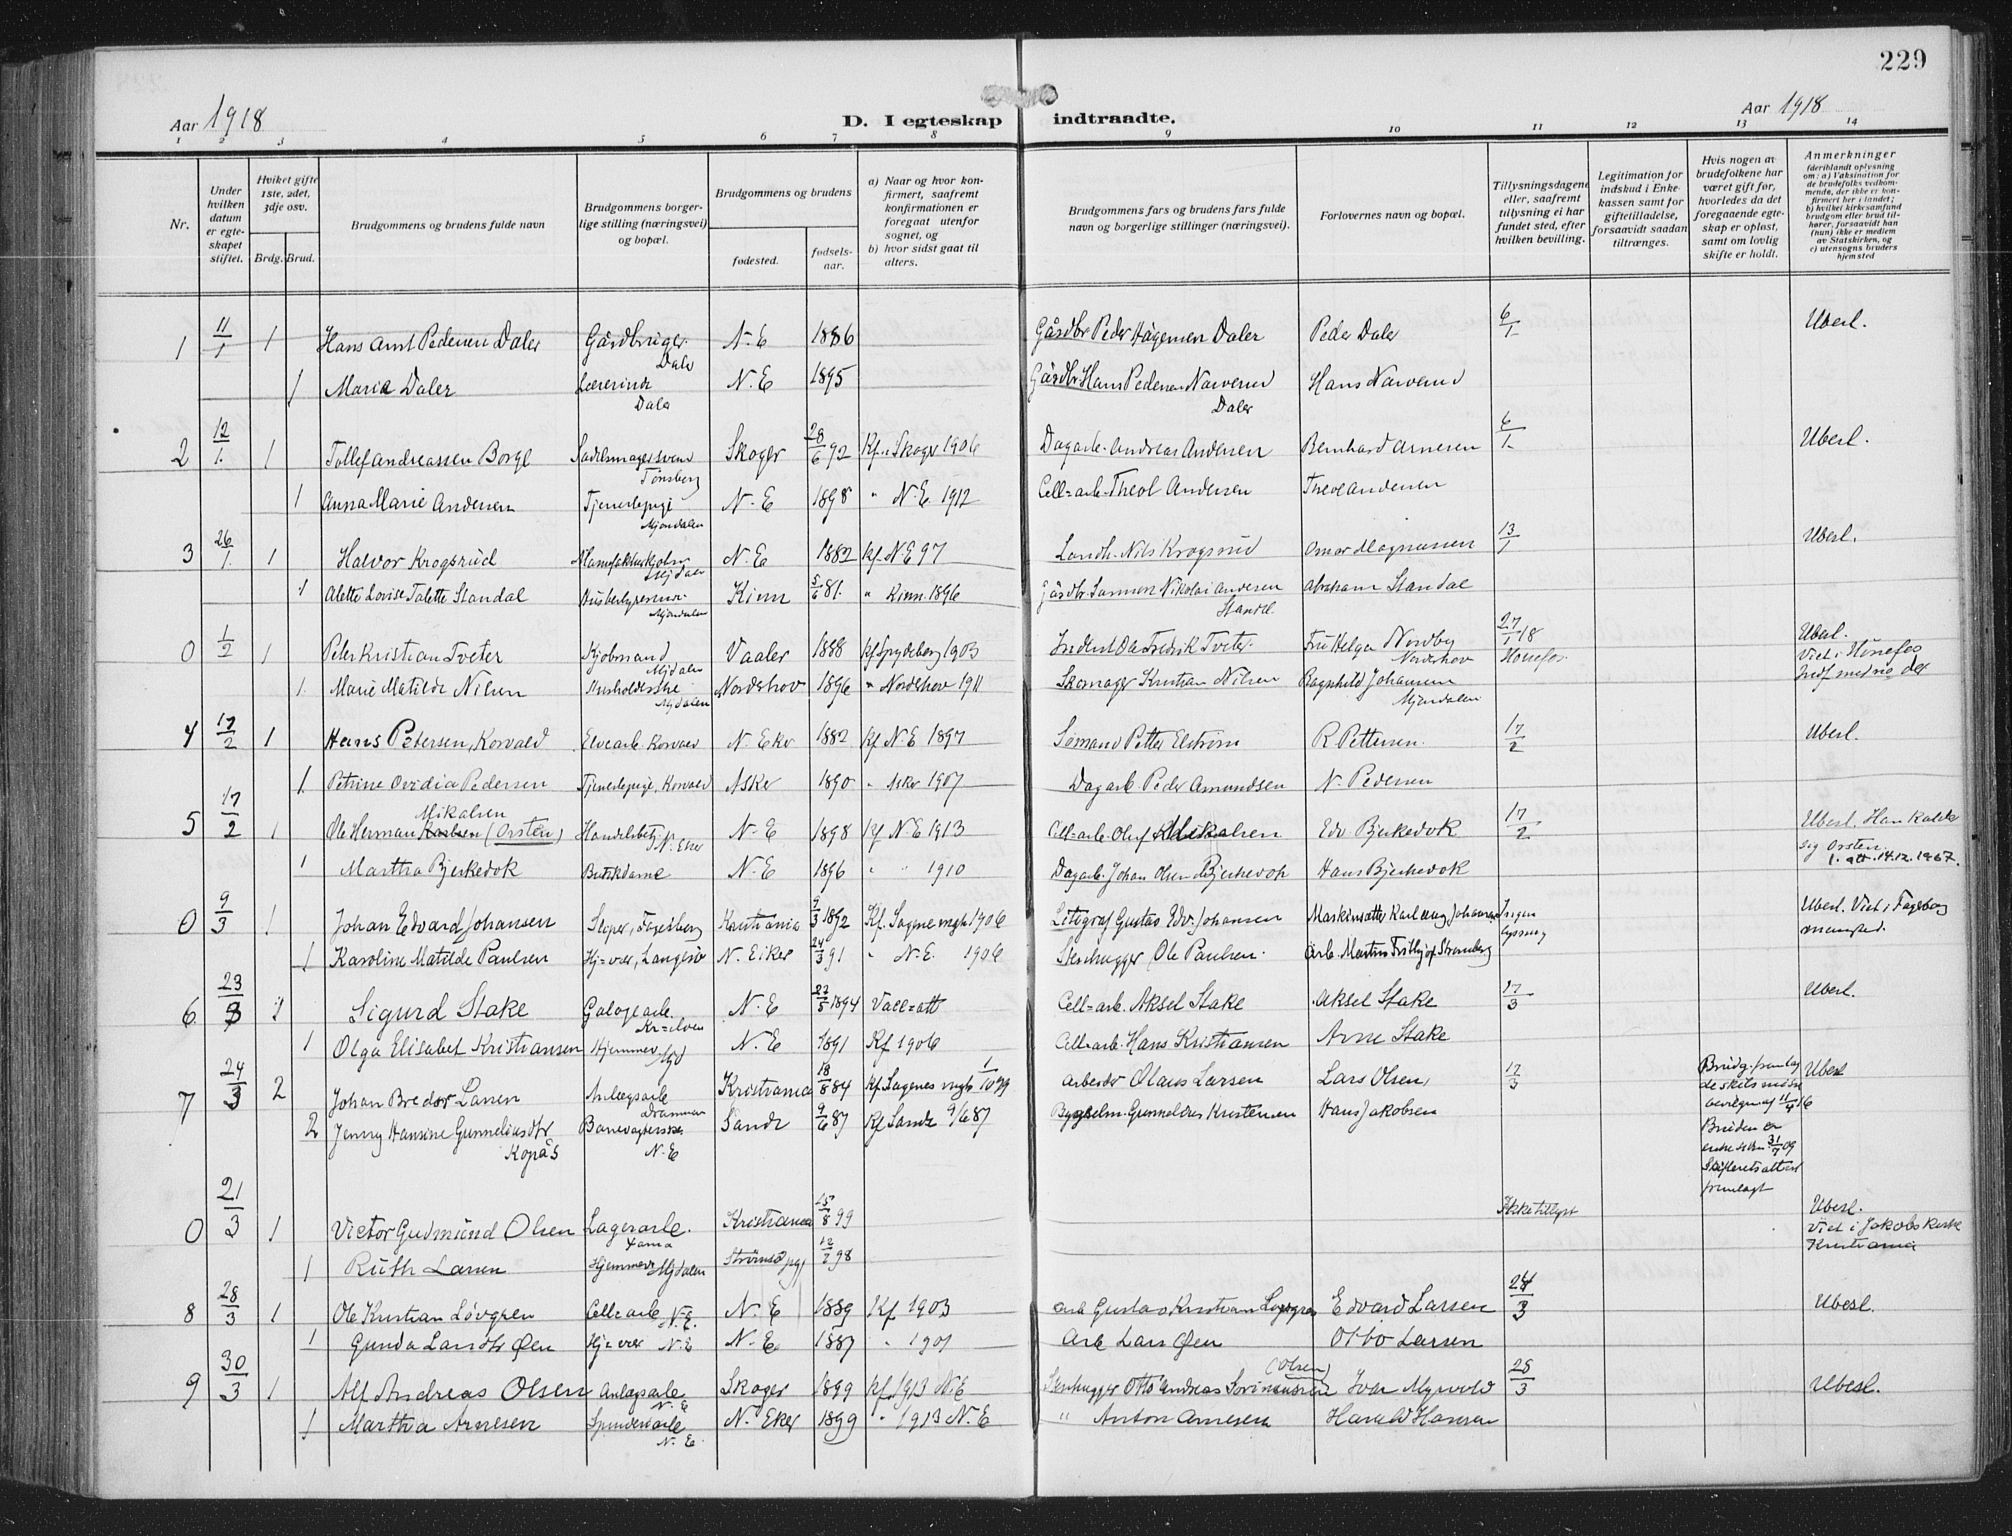 229
Aar 1918
D. I egteskap indtraadte.
Aar 1918
1 2 3 4 5 6 7 8 9 10 11 12 13 14
Nr.
Under hvilken datum er egteskapet stiftet.
Hvilket gifte 1ste, 2det, 3dje osv.
Brdg. Brud.
Brudgommens og brudens fulde navn
Brudgommens borgerlige stilling (næringsvei) og bopæl.
Brudgommens og brudens
fødested.
fødselsaar.
a) Naar og hvor konfirmert, saafremt konfirmationen er foregaat utenfor sognet, og
b) hvor sidst gaat til alters.
Brudgommens fars og brudens fars fulde navn og borgerlige stillinger (næringsvei).
Forlovernes navn og bopæl.
Tillysningsdagene eller, saafremt tillysning ei har fundet sted, efter hvilken bevilling.
Legitimation for indskud i Enkekassen samt for giftetilladelse, forsaavidt saadan tiltrænges.
Hvis nogen av brudefolkene har været gift før, hvorledes da det foregaaende egteskap er opløst, samt om lovlig skifte er holdt.
Anmerkninger
(deriblandt oplysning om: a) Vaksination for de brudefolks vedkommende, der ikke er konfirmert her i landet; b) hvilket kirkesamfund brudgom eller brud tilhører, forsaavidt han (hun) ikke er medlem av Statskirken, og c) utensogns bruders hjemsted
1 11/1 1 Hans Amt Pedersen Daler Gårdbruger Daler N. E 1886 Gårdbr Peder Hågensen Daler Peder Daler 6/1 Ubesl.
1 Maria Daler Lærerinde Daler N. E 1895 Gårdbr Hans Pedersen Narverud Daler Hans Narverud
2 12/1. 1 Tollef Andreassen Borge Sadelmagersvend Tønsberg Skoger 28/6 92 Kf. i Skoger 1906 Dagarb. Andreas Andersen Bernhard Arnesen 6/1. Ubesl.
1 Anna Marie Andersen Tjenestepige Mjøndalen N. E 1898 " N. E. 1912 Cell=arb. Theol Andersen Theol Andersen
3 26/1. 1 Halvor Krogsrud N. E 1882 Kf. N E 97 Landh. Nils Krogsrud Omar Magnussen 13/1 Ubesl.
1 Alette Lovise Talette Standal Mjøndalen Kinn 5/6 81. " Kinn. 1896 Gårdbr. Nikolai Andersen Standl. Abraham Standal
0 1/2 1 Peter Kristian Tveter Kjøbmand Mjdalen Vaaler 1888 Kf Spydeberg 1903 Ole Fredrik Tveter. Fru Helga Nordby Norderhov 27/1 18 Hønefos Ubesl. Viet i Hønefos
1. Marie Matilde Nilsen Husholderske Mjdalen Norderhov 1896 " Norderhov 1911 Skomager Kristian Nilsen Ragnhild Johansen Mjøndalen
4 17/2 1 Hans Petersen, Korvald Elvearb. Korvald N. Eker 1882 Kf N. E 1897 Sømand Petter Elstrøm R Pettersen. 17/2 Ubesl.
1. Petrine Ovidia Pedersen Tjenestepige, Korvald Asker 1890 " Asker 1907 Dagarb Peder Amundsen N. Pedersen
5 17/2 1 Ole Herman Mikalsen (Orsten) Handelsbetj. N. Eker N. E 1898 Kf N. E. 1913 Cell=arb. Oluf Mikalsen Edv. Bjerkedok 17/2 Ubesl. Han kalder sig Orsten, l. att. 14.12.1967.
1 Martha Bjerkedok Butikdame N. E 1896 " " 1910 Dagarb. Johan Olsen Bjerkedok Hans Bjerkedok
0 9/3 1 Johan Edvard Johansen Støper, Fagerberg Kristiania 9/3 1892 Kf. Sagene mgh 1906 Litograf Gustav Edv. Johansen Maskinsætter Karl Aug Johansen Ingen lysning Ubesl. Viet i Fagerborg menighed.
1 Karoline Matilde Paulsen Hj=vær, Langesø N. Eiker 24/3 91 " N. E. 1906 Stenhugger Ole Paulsen. Arb. Martin Fritjof Strømberg
6. 23/3 1 Sigurd Stake Galogearb. Kr=elven N. E 27/5 1894 Vacc=att Cell=arb. Aksel Stake Aksel Stake 17/3 Ubesl.
1 Olga Elisabet Kristiansen Hjemmev N. E 1891 Kf 1906 Cell=arb. Hans Kristiansen Arne Stake
7 24/3 2 Johan Breder Larsen Anlægsarb. Drammen Kristiania 18/8 84 Kf. Sagenes mgh 1/10 99 Arbeider Olaus Larsen Lars Olsen, 17/3 Brudg. fremlag de skilsmisse bevilgn. af 11/4 16 Ubesl
2 Jenny Hansine Gunneliusdtr Kopås Banevogterske N. E Sande 9/6 87 Kf Sande 9/6 87 Bygselm. Gunnelius Kristensen Hans Jakobsen Bruden er enke siden 31/7 09 Skifteretsattest fremlagt
0 21/3 1 Victor Gudmund Olsen Lagerarb. Kristiania 15/8 99 Ikke tillyst Ubesl. Viet i Jakobs kirke Kristiania
1 Ruth Larsen Hjemmev Mjdalen 12/2 98
8 28/3 1 Ole Kristian Løvgren Cell=arb N. E. N. E 1889 Kf 1903 Arb Gustav Kristian Løvgren Edvard Larsen 24/3 Ubesl.
1 Gunda Larsdtr Øen Hj=vær N. E N. E. 1887 " 1901 Arb Lars Øen Otto Larsen
9 30/3 1 Alf Andreas Olsen Anlægsarb. N. E Skoger 1899 Kf. 1913 N. E Stenhugger Otto Andreas (Olsen) Ivar Myrvold 28/3 Ubesl.
1 Martha Arnesen N. E. N. Eker 1899 " 1913 N. E " Anton Arnesen Hans W Hansen